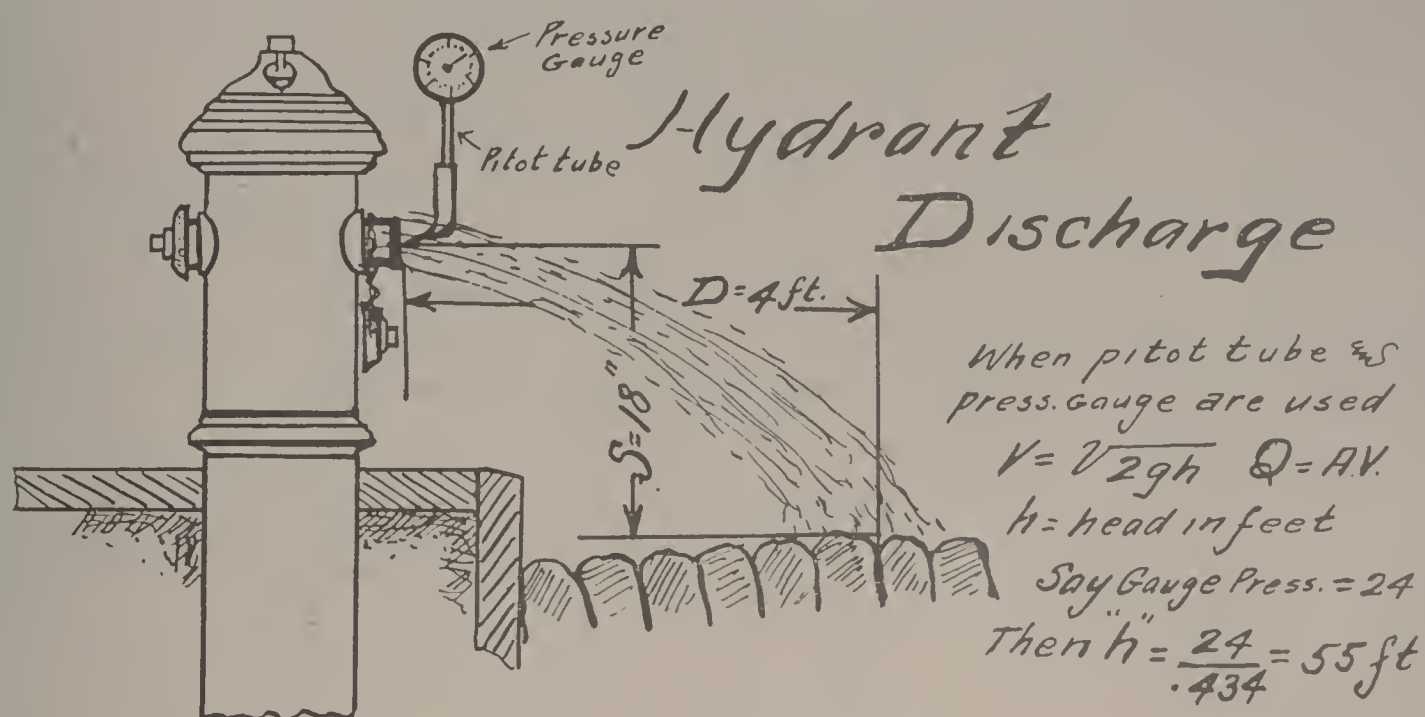 Pressure
Gauge
Pitot tube
Hydrant
Discharge
D=4ft.
S=18"
When pitot tube &
press. Gauge are used
V=√2gh Q=A.V.
h=head in feet
Say Gauge Press.=24
Then "h"=24/.434=55ft